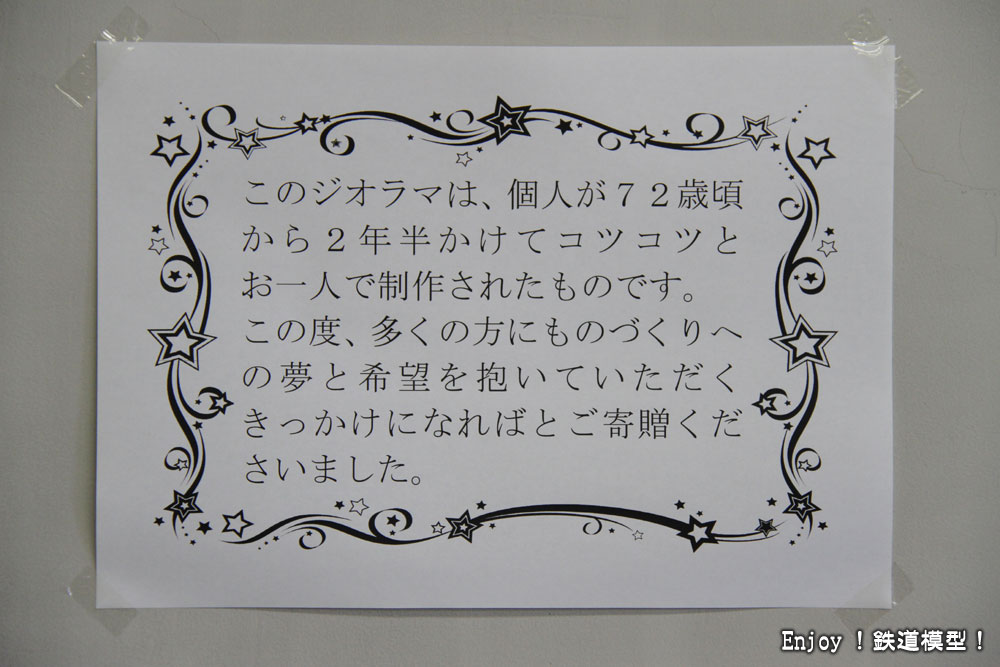 このジオラマは、個人が７２歳頃
から２年半かけてコツコツと
お一人で制作されたものです。
この度、多くの方にものづくりへ
の夢と希望を抱いていただく
きっかけになればとご寄贈くだ
さいました。
Enjoy！鉄道模型！